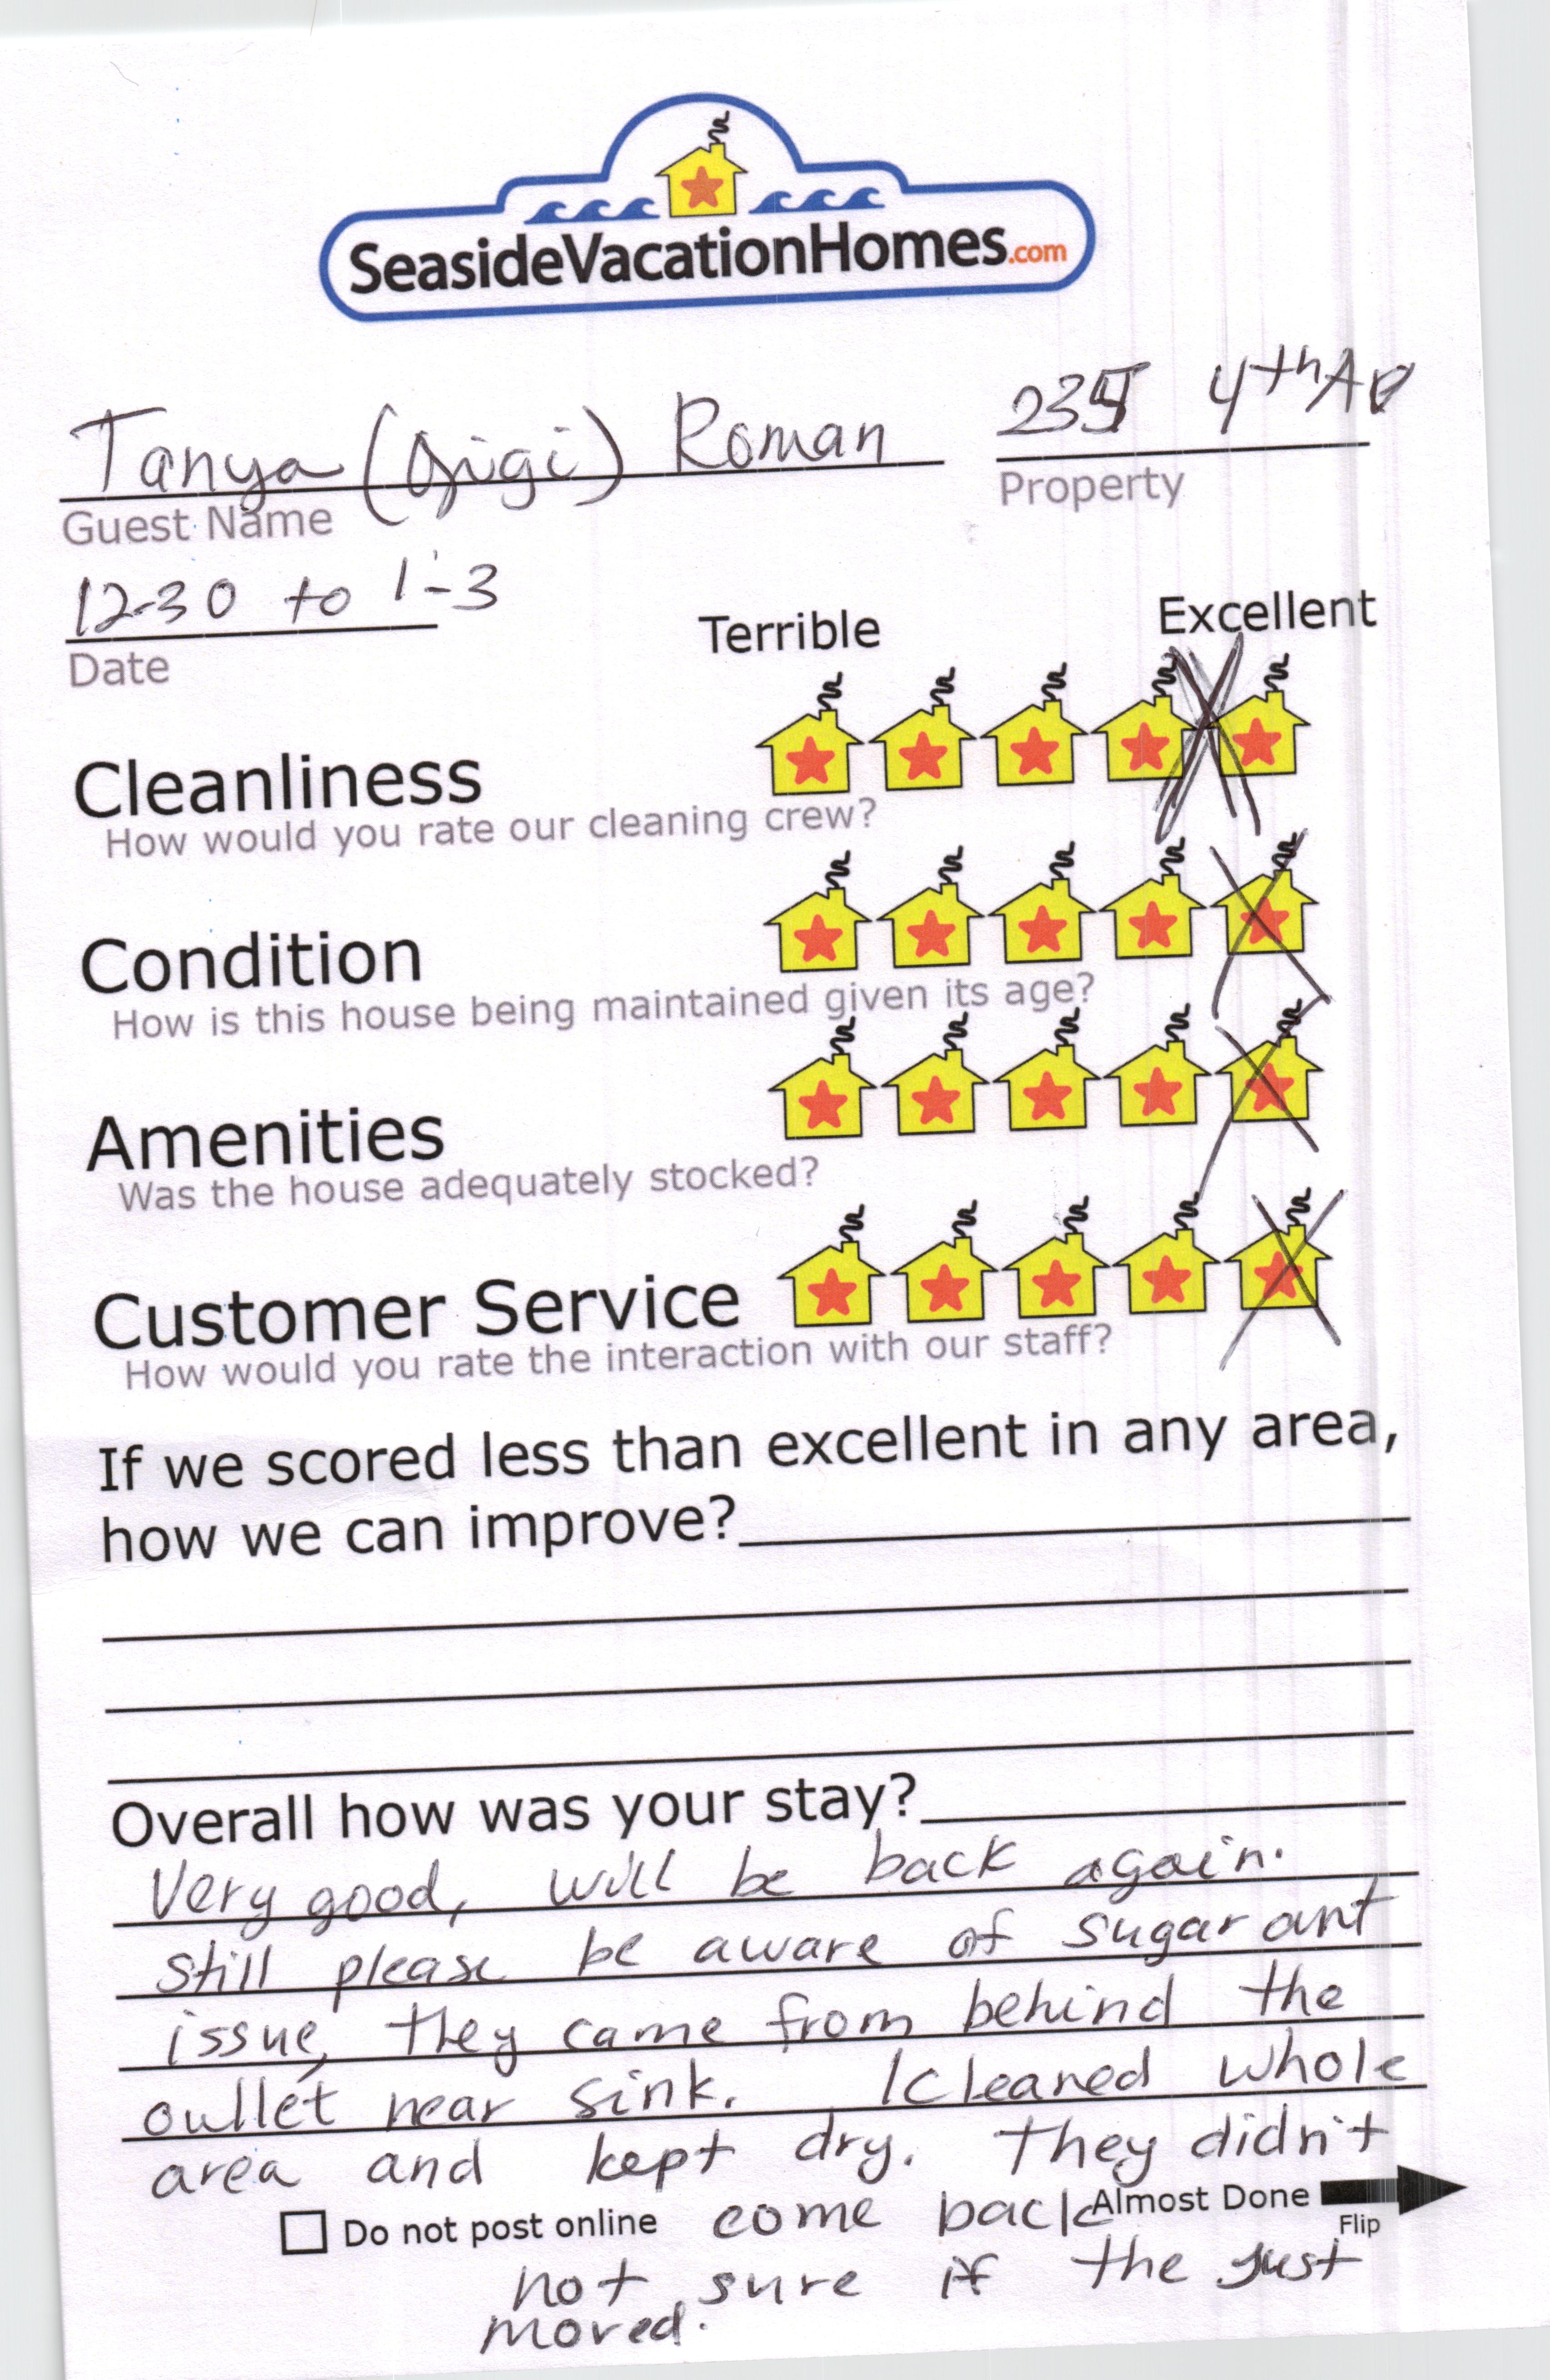 SeasideVacationHomes.com
Tanya (Gigi) Roman
4th Av
Guest Name
Property
12-30 to 1-3
Date
Terrible
Excellent
Cleanliness
How would you rate our cleaning crew?
Condition
How is this house being maintained given its age?
Amenities
Was the house adequately stocked?
Customer Service
How would you rate the interaction with our staff?
If we scored less than excellent in any area,
how we can improve?
Overall how was your stay?
Very good, will be back again.
still please be aware of sugar ant
issue, they came from behind the
outlet near sink. I cleaned whole
area and kept dry. They didn't
Do not post online come back Almost Done
Flip
not sure if the just
moved.